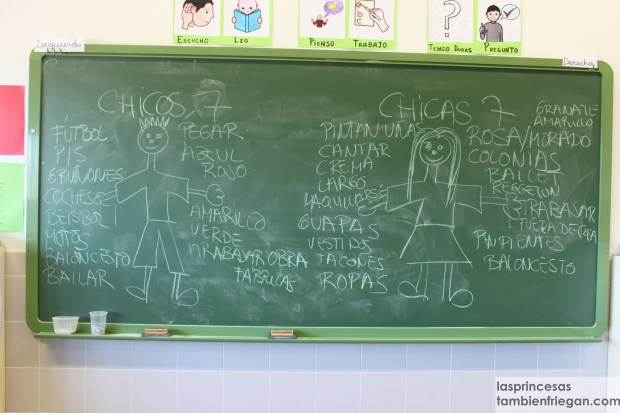 ESCUCHO
LEO
PIENSO
TRABAJO
TENGO DUDAS
PREGUNTO
Izquierda
Derecha
CHICOS 7
FÚTBOL
PIS
GRUÑONES
COCHES
BEISBOL
MOTOS
BALONCESTO
BAILAR
PEGAR
AZUL
ROJO
AMARILLO
VERDE
TRABAJAR OBRA
FÁBRICAS
CHICAS 7
PINTAN UÑAS
CANTAR
CREMA
LARGO
GUAPAS
VESTIDOS
TACONES
ROPAS
GRANATE
AMARILLO
ROSA/MORADO
COLONIAS
BAILE
REGGETON
TRABAJAR
FUERA DE CASA
PENDIENTES
BALONCESTO
lasprincesas
tambienfriegan.com